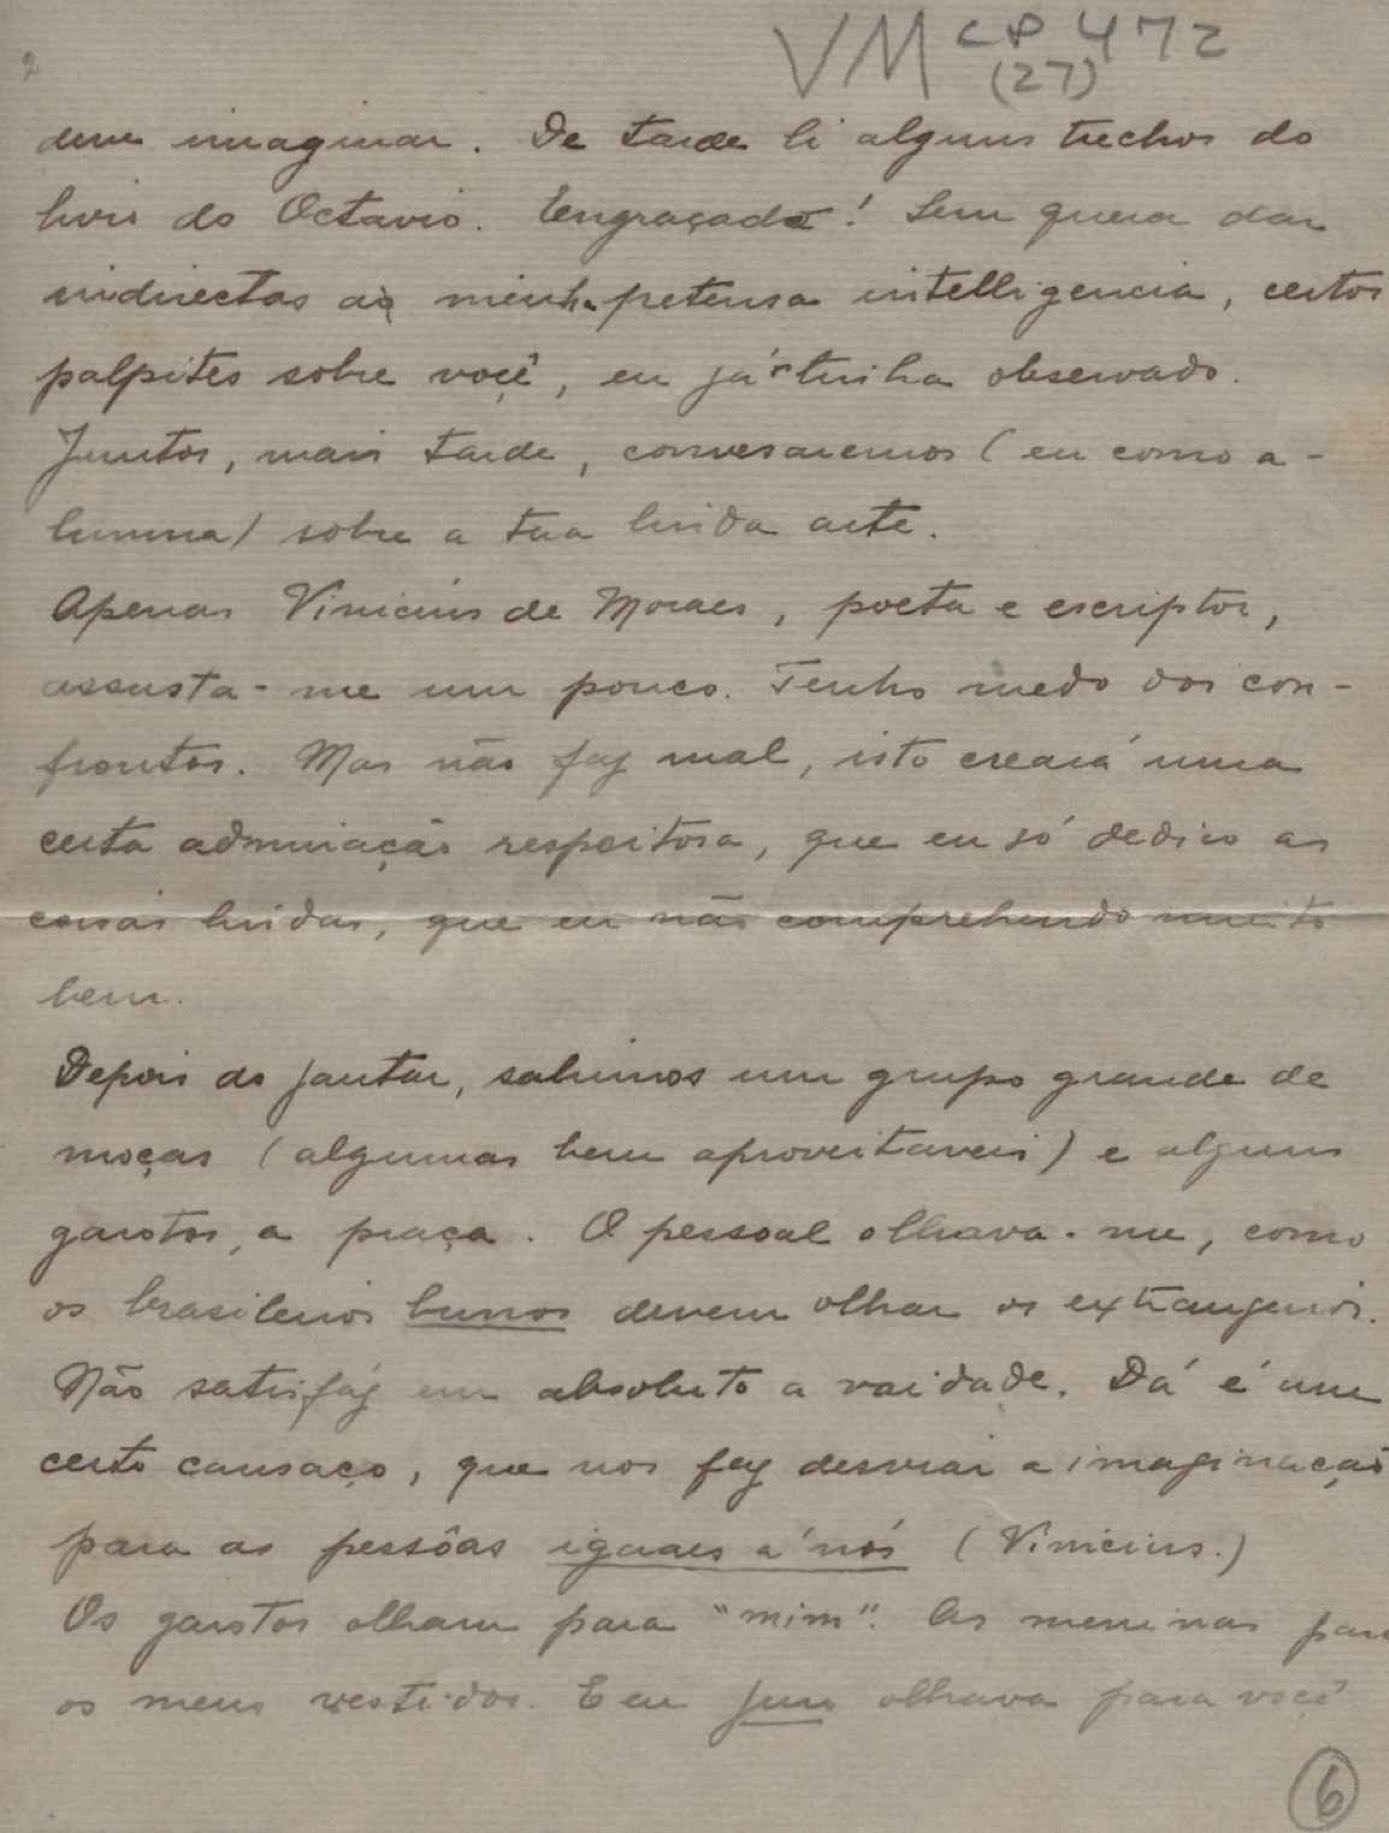 2
VM CP 472
(27)
deve imaginar. De tarde li alguns trechos do
livro do Octavio. Engraçado! Sem querer dar
indirectas a minha pretensa intelligencia, certos
palpites sobre você, eu já tinha observado.
Juntos, mais tarde, conversaremos (eu como a-
lumna) sobre a tua linda arte.
Apenas Vinicius de Moraes, poeta e escriptor,
assusta-me um pouco. Tenho medo dos con-
frontos. Mas não faz mal, isto creará uma
certa admiração respeitosa, que eu só dedico as
coisas lindas, que eu não comprehendo muito
bem.
Depois do jantar, sahimos um grupo grande de
moças (algumas bem aproveitaveis) e alguns
garotos, a praça. O pessoal olhava-me, como
os brasileiros burros devem olhar os extrangeiros.
Não satisfaz em absoluto a vaidade. Dá é um
certo cansaço, que nos faz desviar a imaginação
para as pessôas iguaes á nós (Vinicius.)
Os garotos olham para "mim". As meninas para
os meus vestidos. E eu juro olhava para você
6